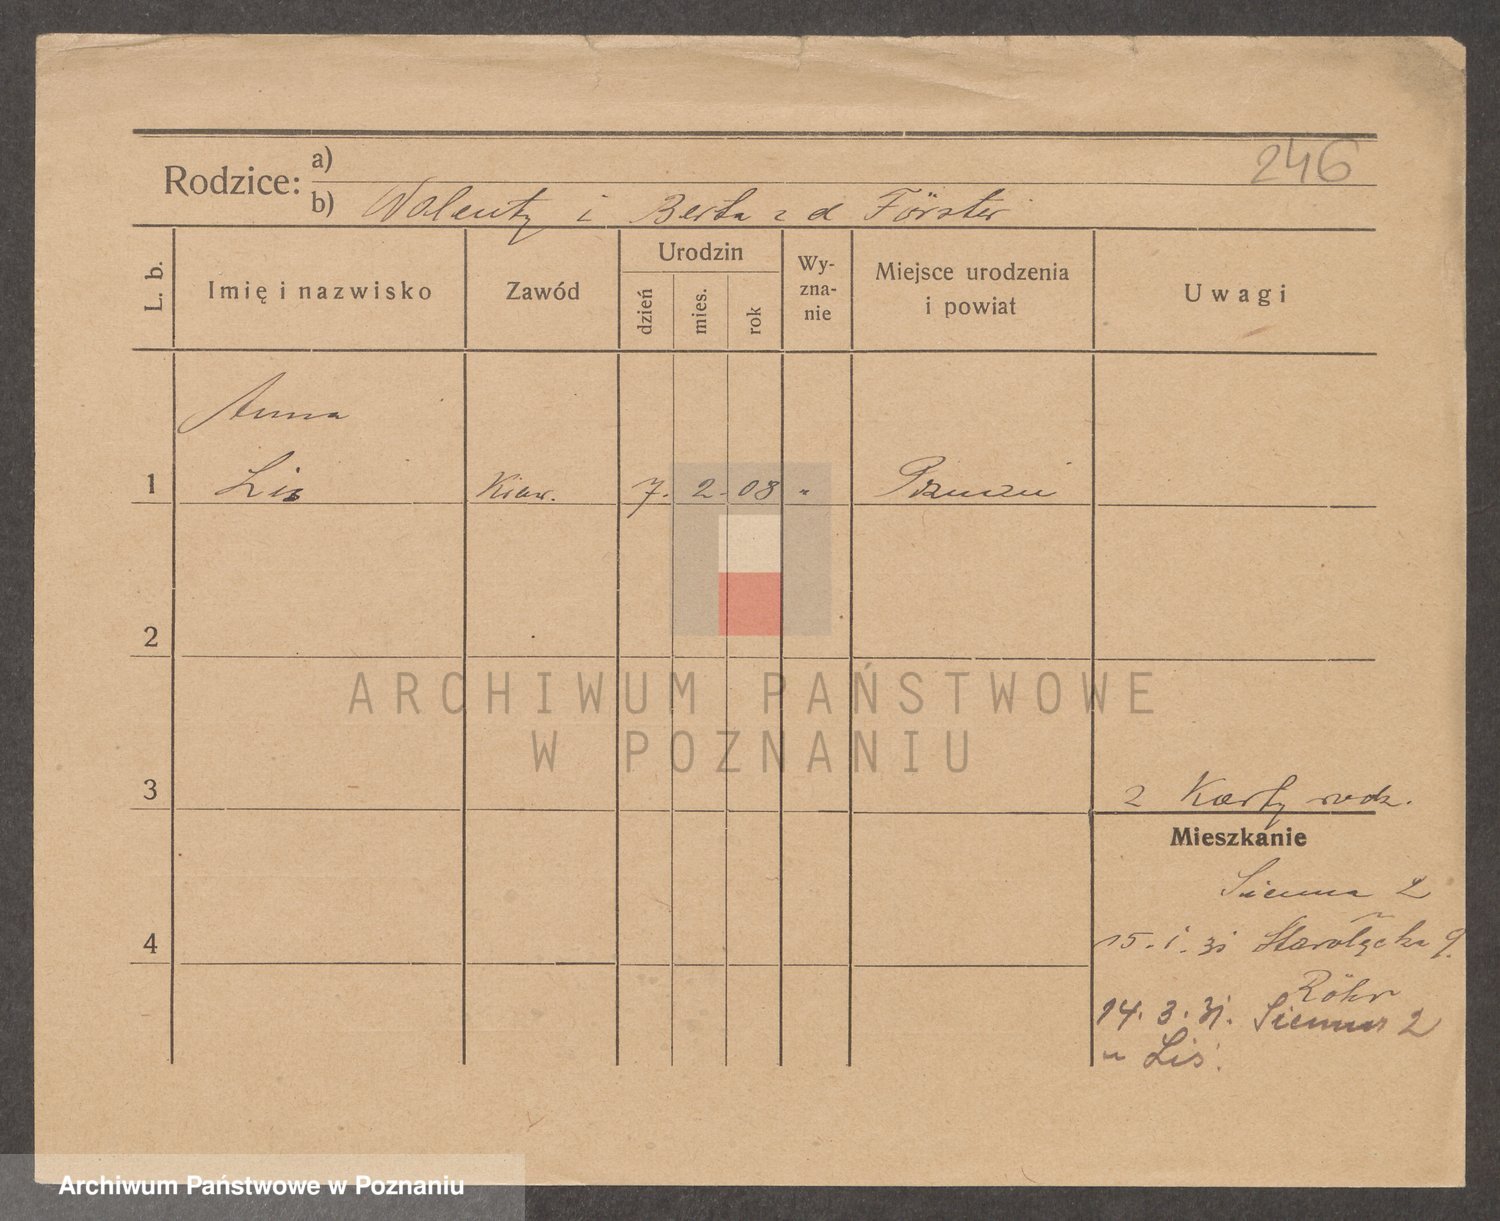 246
Rodzice: a)
b) Walenty i Berta z d Förster
L. b.
Imię i nazwisko
Zawód
Urodzin
dzień
mies.
rok
Wy-
zna-
nie
Miejsce urodzenia
i powiat
Uwagi
Anna
1 Lis Kraw. 7. 2. 08 " Poznań
2
3
2 Karty rodz.
Mieszkanie
Sienna 2
15. 1. 31 Starołęcka 9.
4
Röhr
14. 3. 31. Sienna 2
u Lis.
ARCHIWUM PAŃSTWOWE
W POZNANIU
Archiwum Państwowe w Poznaniu